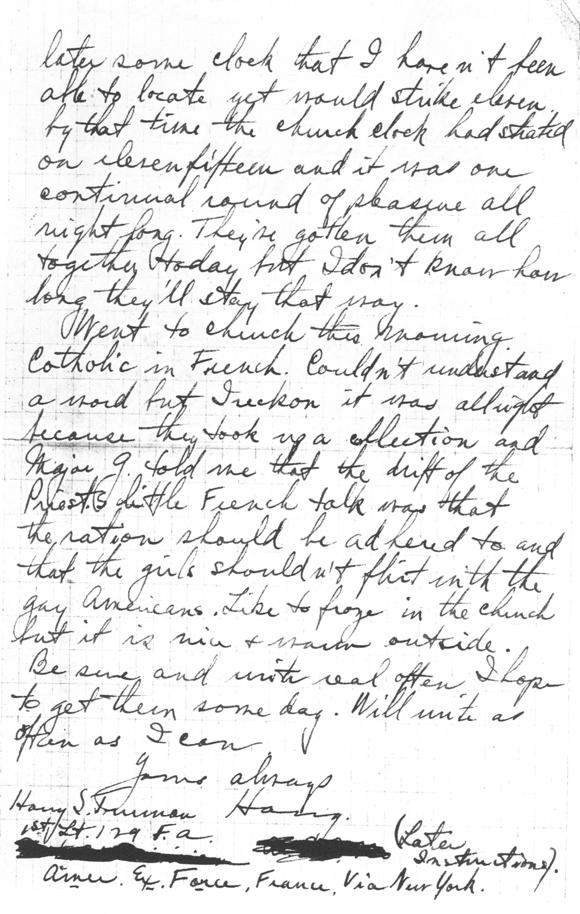 later some clock that I haven't been
able to locate yet would strike eleven.
by that time the church clock had started
on elevenfifteen and it was one
continual round of pleasure all
night long. They've gotten them all
together today but I don't know how
long they'll stay that way.
Went to church this morning.
Catholic in French. Couldn't understand
a word but I reckon it was allright
because they took up a collection and
Major G. told me that the drift of the
Priest's little French talk was that
the ration should be adhered to and
that the girls shouldn't flirt with the
gay Americans. Like to froze in the church
but it is nice & warm outside.
Be sure and write real often I hope
to get them some day. Will write as
often as I can
Yours always
Harry.
Harry S. Truman
1st/Lt. 129 F.A.
(Later
Instructions).
Amer. Ex. Force, France, Via New York.